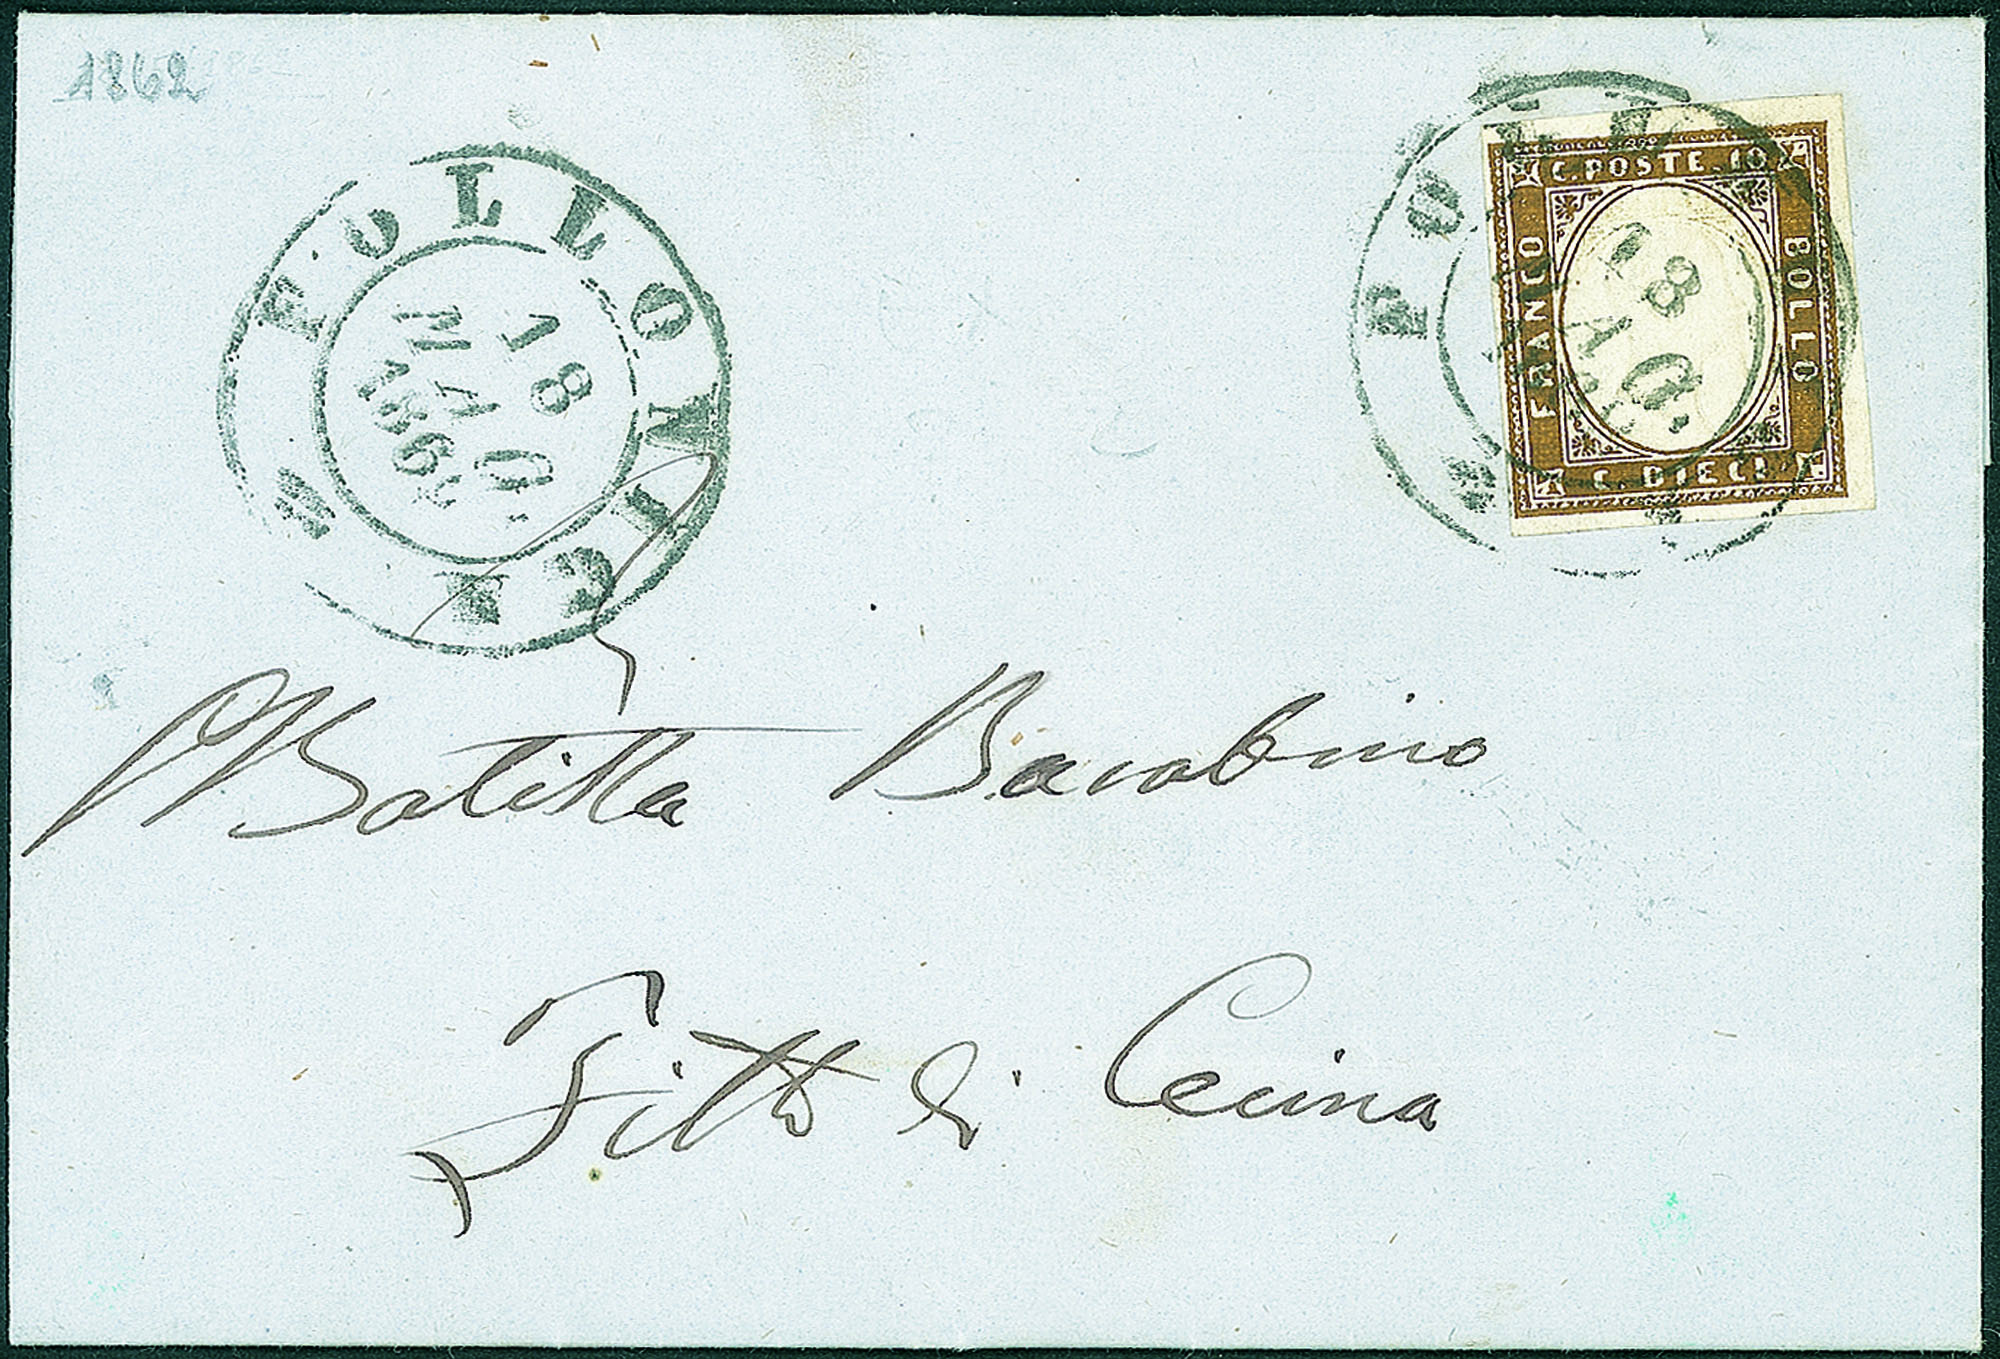 1862
FOLLONICA
18
MAG.
1862
FOLL
18
MAG.
C. POSTE. 10
FRANCO
BOLLO
C. DIECI
Batitta Barabino
Fitto di Cecina